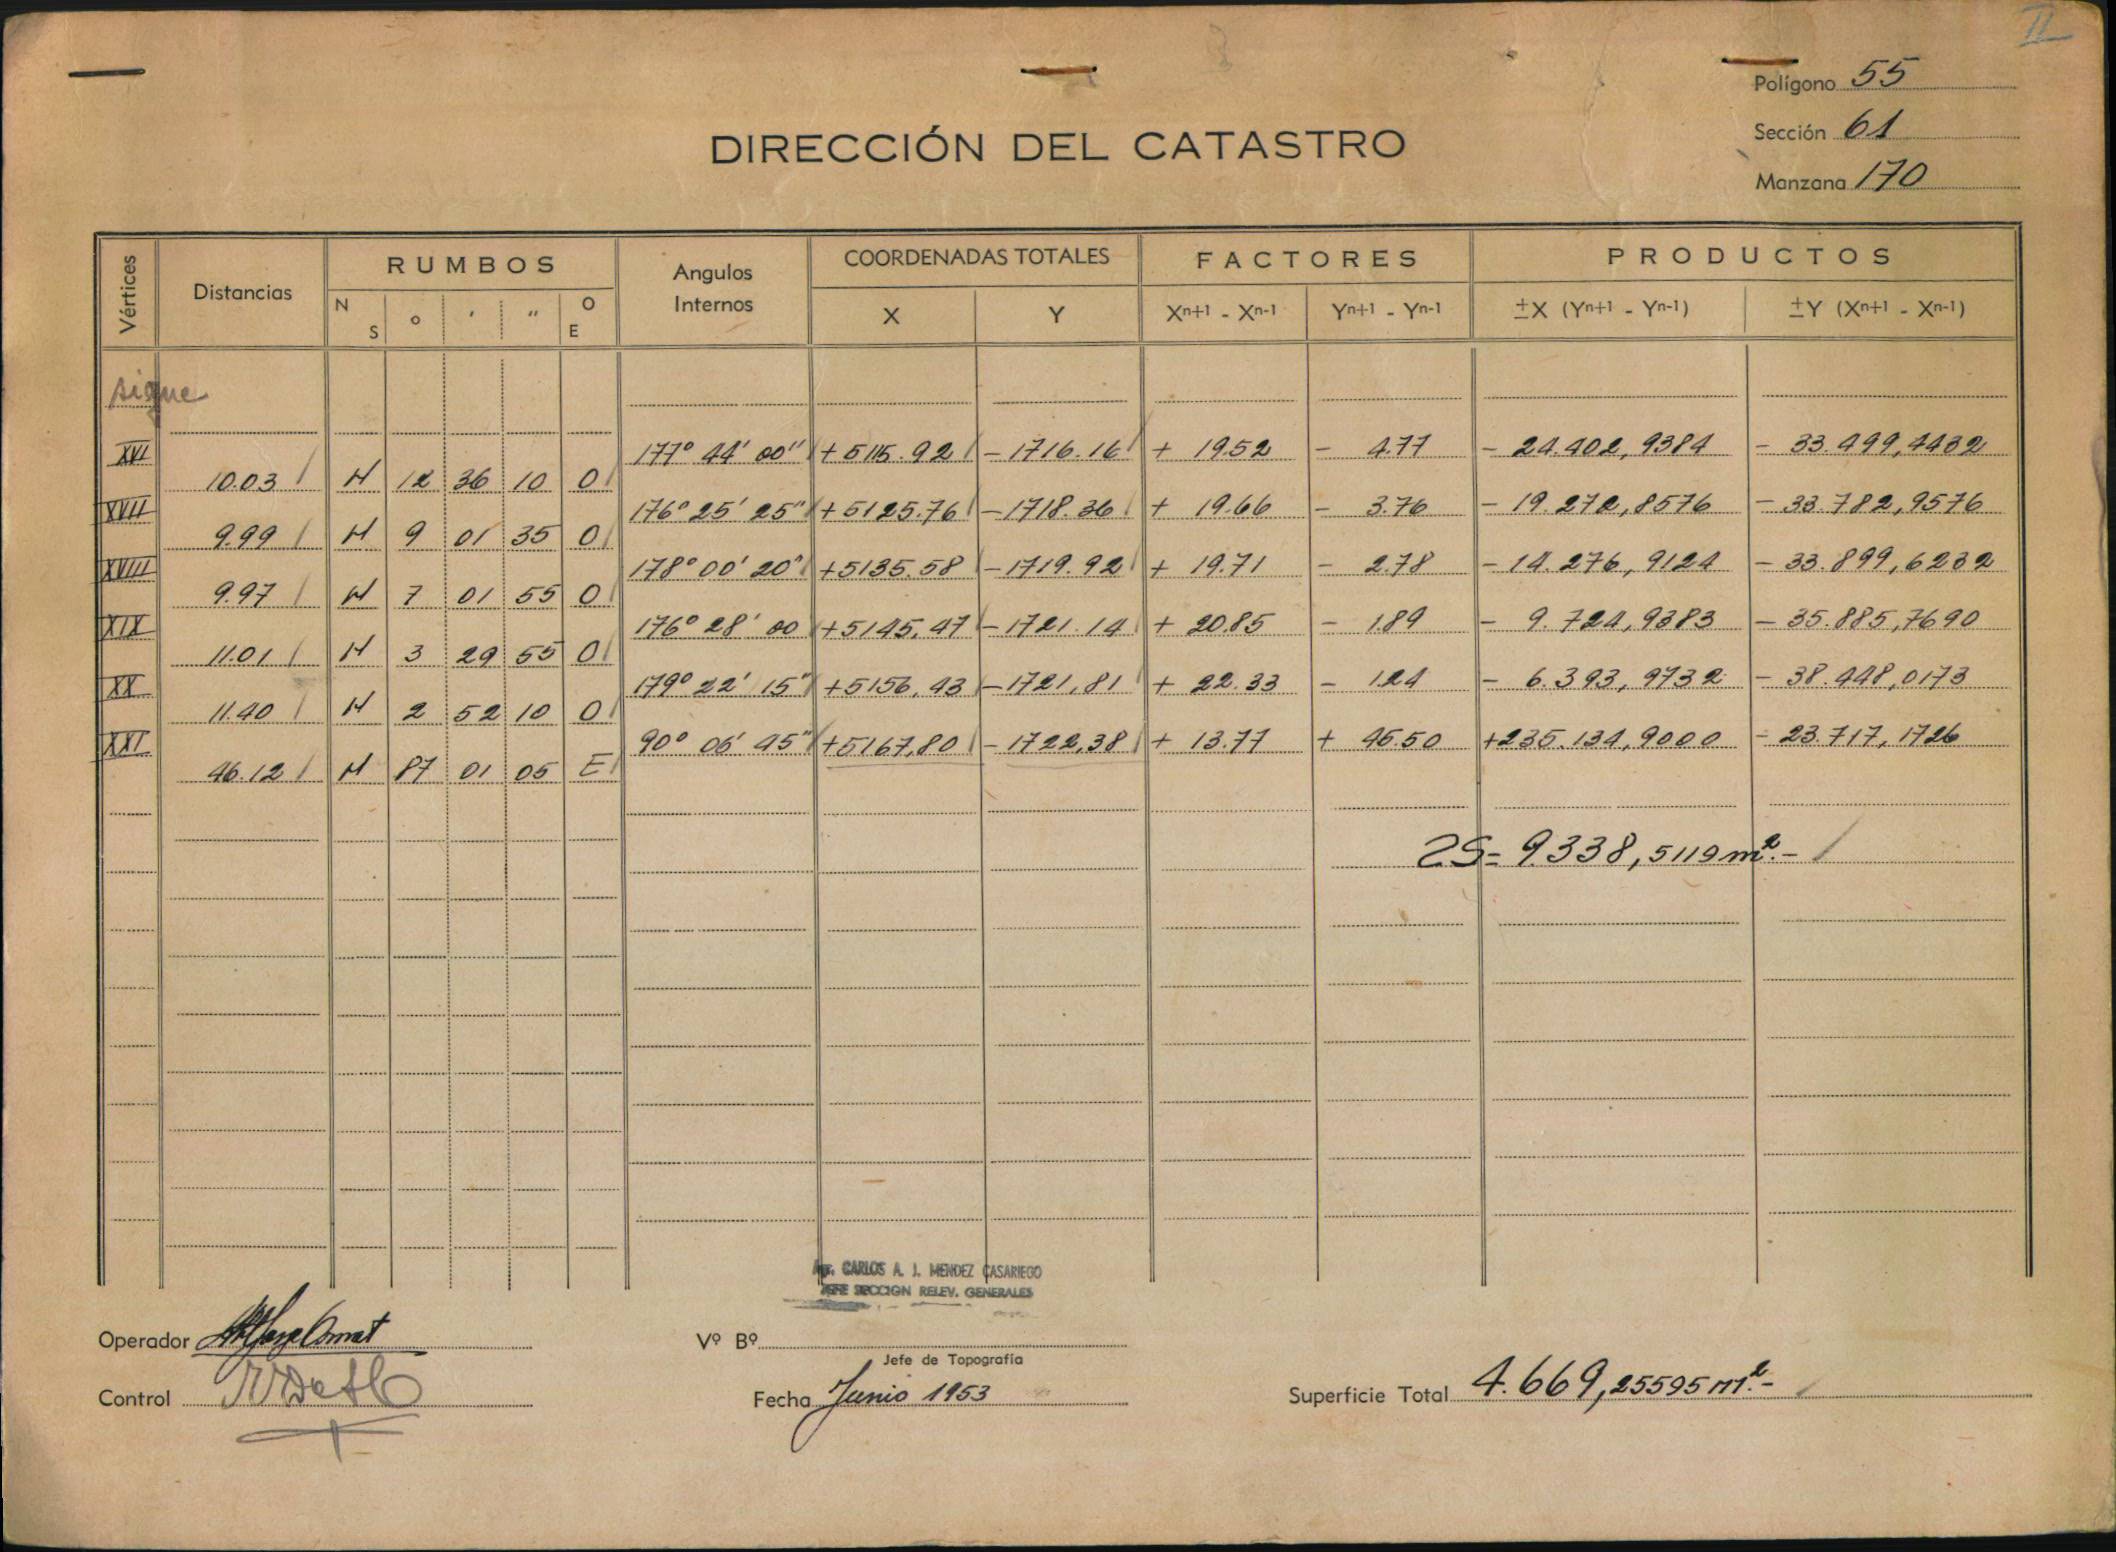 II
Polígono 55
Sección 61
Manzana 170
DIRECCIÓN DEL CATASTRO
Vértices Distancias RUMBOS Angulos Internos COORDENADAS TOTALES FACTORES PRODUCTOS
N S o ' " O E X Y Xn+1 - Xn-1 Yn+1 - Yn-1 ±X (Yn+1 - Yn-1) ±Y (Xn+1 - Xn-1)
sigue
XVI 177° 44' 00" +5115.92 -1716.16 + 19.52 - 4.77 - 24.402,9384 - 33.499,4432
10.03 N 12 36 10 O
XVII 176° 25' 25" +5125.76 -1718.36 + 19.66 - 3.76 - 19.272,8576 - 33.782,9576
9.99 N 9 01 35 O
XVIII 178° 00' 20" +5135.58 -1719.92 + 19.71 - 2.78 - 14.276,9124 - 33.899,6232
9.97 N 7 01 55 O
XIX 176° 28' 00 +5145.47 -1721.14 + 20.85 - 1.89 - 9.724,9383 - 35.885,7690
11.01 N 3 29 55 O
XX 179° 22' 15" +5156.43 -1721,81 + 22.33 - 1.24 - 6.393,9732 - 38.448,0173
11.40 N 2 52 10 O
XXI 90° 06' 45" +5167,80 -1722,38 + 13.77 + 45.50 +235.134,9000 - 23.717,1726
46.12 N 87 01 05 E
2S= 9.338,5119 m².-
Agr. CARLOS A. J. MENDEZ CASARIEGO
JEFE SECCION RELEV. GENERALES
Operador
Vº Bº
Jefe de Topografía
Control
Fecha Junio 1953
Superficie Total 4.669,25595 m².-